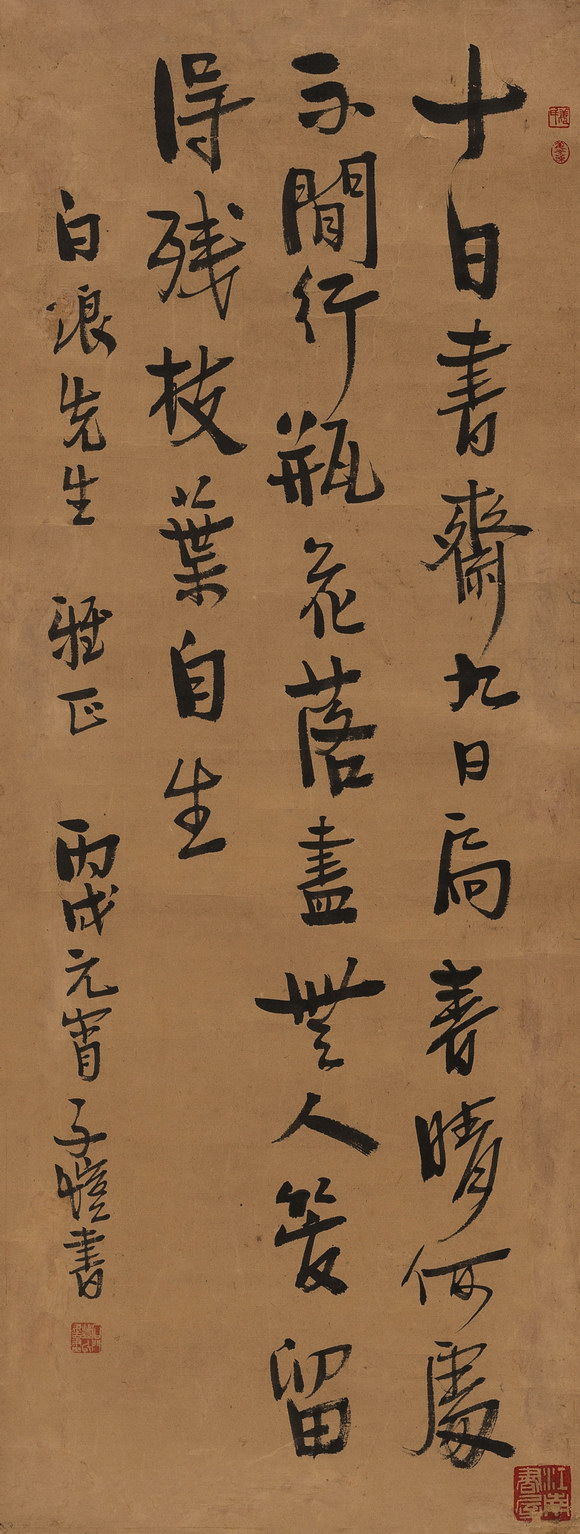 十日書齋九日扃春晴何處
不間行瓶花落盡無人管留
得残枝葉自生
白浪先生 雅正 丙戌元宵子愷書